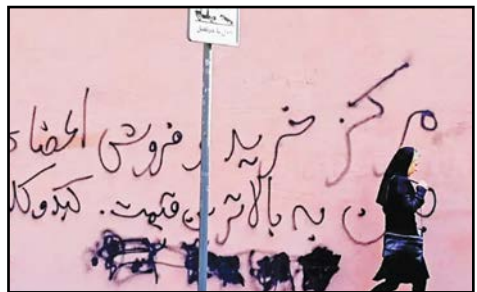 مرکز خرید و فروش اعضای
به بالاترین قیمت. کبد و